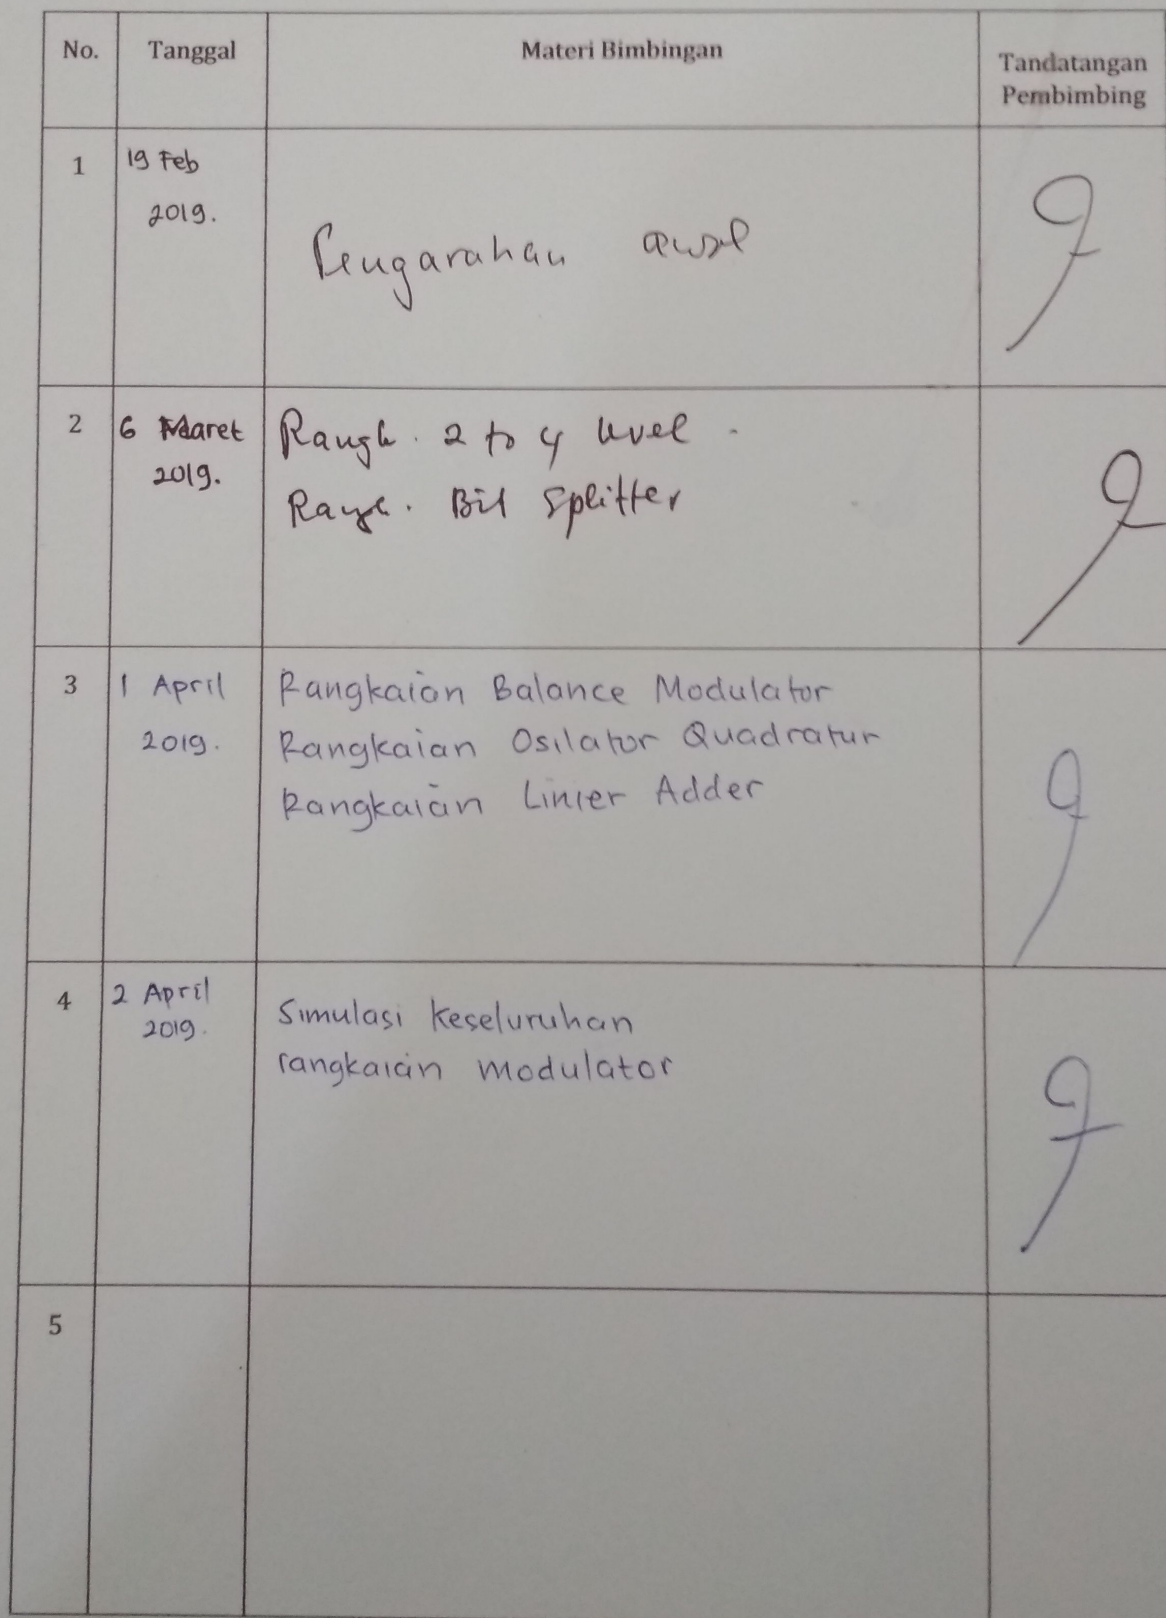 No. Tanggal Materi Bimbingan Tandatangan
Pembimbing
1 19 Feb
2019.
Pengarahan awal
2 6 Maret Rangk. 2 to 4 level.
2019. Rangk. Bit Splitter
3 1 April Rangkaian Balance Modulator
2019. Rangkaian Osilator Quadratur
Rangkaian Linier Adder
4 2 April Simulasi keseluruhan
2019. rangkaian modulator
5